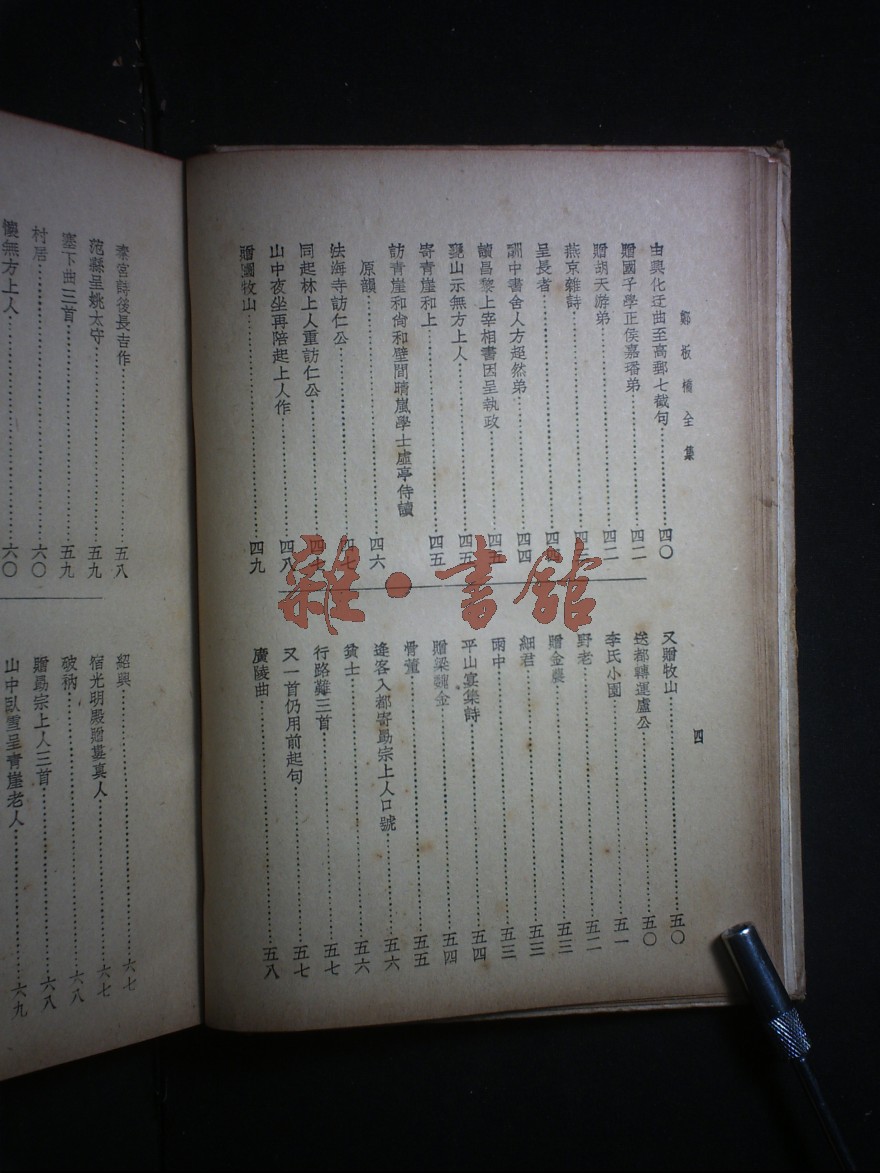 鄭板橋全集
四
由興化迂曲至高郵七截句⋯⋯四〇
贈國子學正侯嘉璠弟⋯⋯四二
贈胡天游弟⋯⋯四二
燕京雜詩⋯⋯四
呈長者⋯⋯四
詶中書舍人方超然弟⋯⋯四四
讀昌黎上宰相書因呈執政⋯⋯四
甕山示無方上人⋯⋯四五
寄青崖和上⋯⋯四五
訪青崖和尙和壁間晴嵐學士虛亭侍讀
原韻⋯⋯四六
法海寺訪仁公⋯⋯四七
同起林上人重訪仁公⋯⋯四
山中夜坐再陪起上人作⋯⋯四八
贈圖牧山⋯⋯四九
又贈牧山⋯⋯五〇
送都轉運盧公⋯⋯五〇
李氏小園⋯⋯五一
野老⋯⋯五二
贈金農⋯⋯五三
細君⋯⋯五三
雨中⋯⋯五三
平山宴集詩⋯⋯五四
贈梁魏金⋯⋯五四
骨董⋯⋯五五
逢客入都寄勗宗上人口號⋯⋯五六
貧士⋯⋯五六
行路難三首⋯⋯五七
又一首仍用前起句⋯⋯五七
廣陵曲⋯⋯五八
秦宮詩後長吉作⋯⋯五八
范縣呈姚太守⋯⋯五九
塞下曲三首⋯⋯五九
村居⋯⋯六〇
懷無方上人⋯⋯六〇
紹興⋯⋯六七
宿光明殿贈婁眞人⋯⋯六七
破衲⋯⋯六八
贈勗宗上人三首⋯⋯六八
山中臥雪呈青崖老人⋯⋯六九
雜·書館